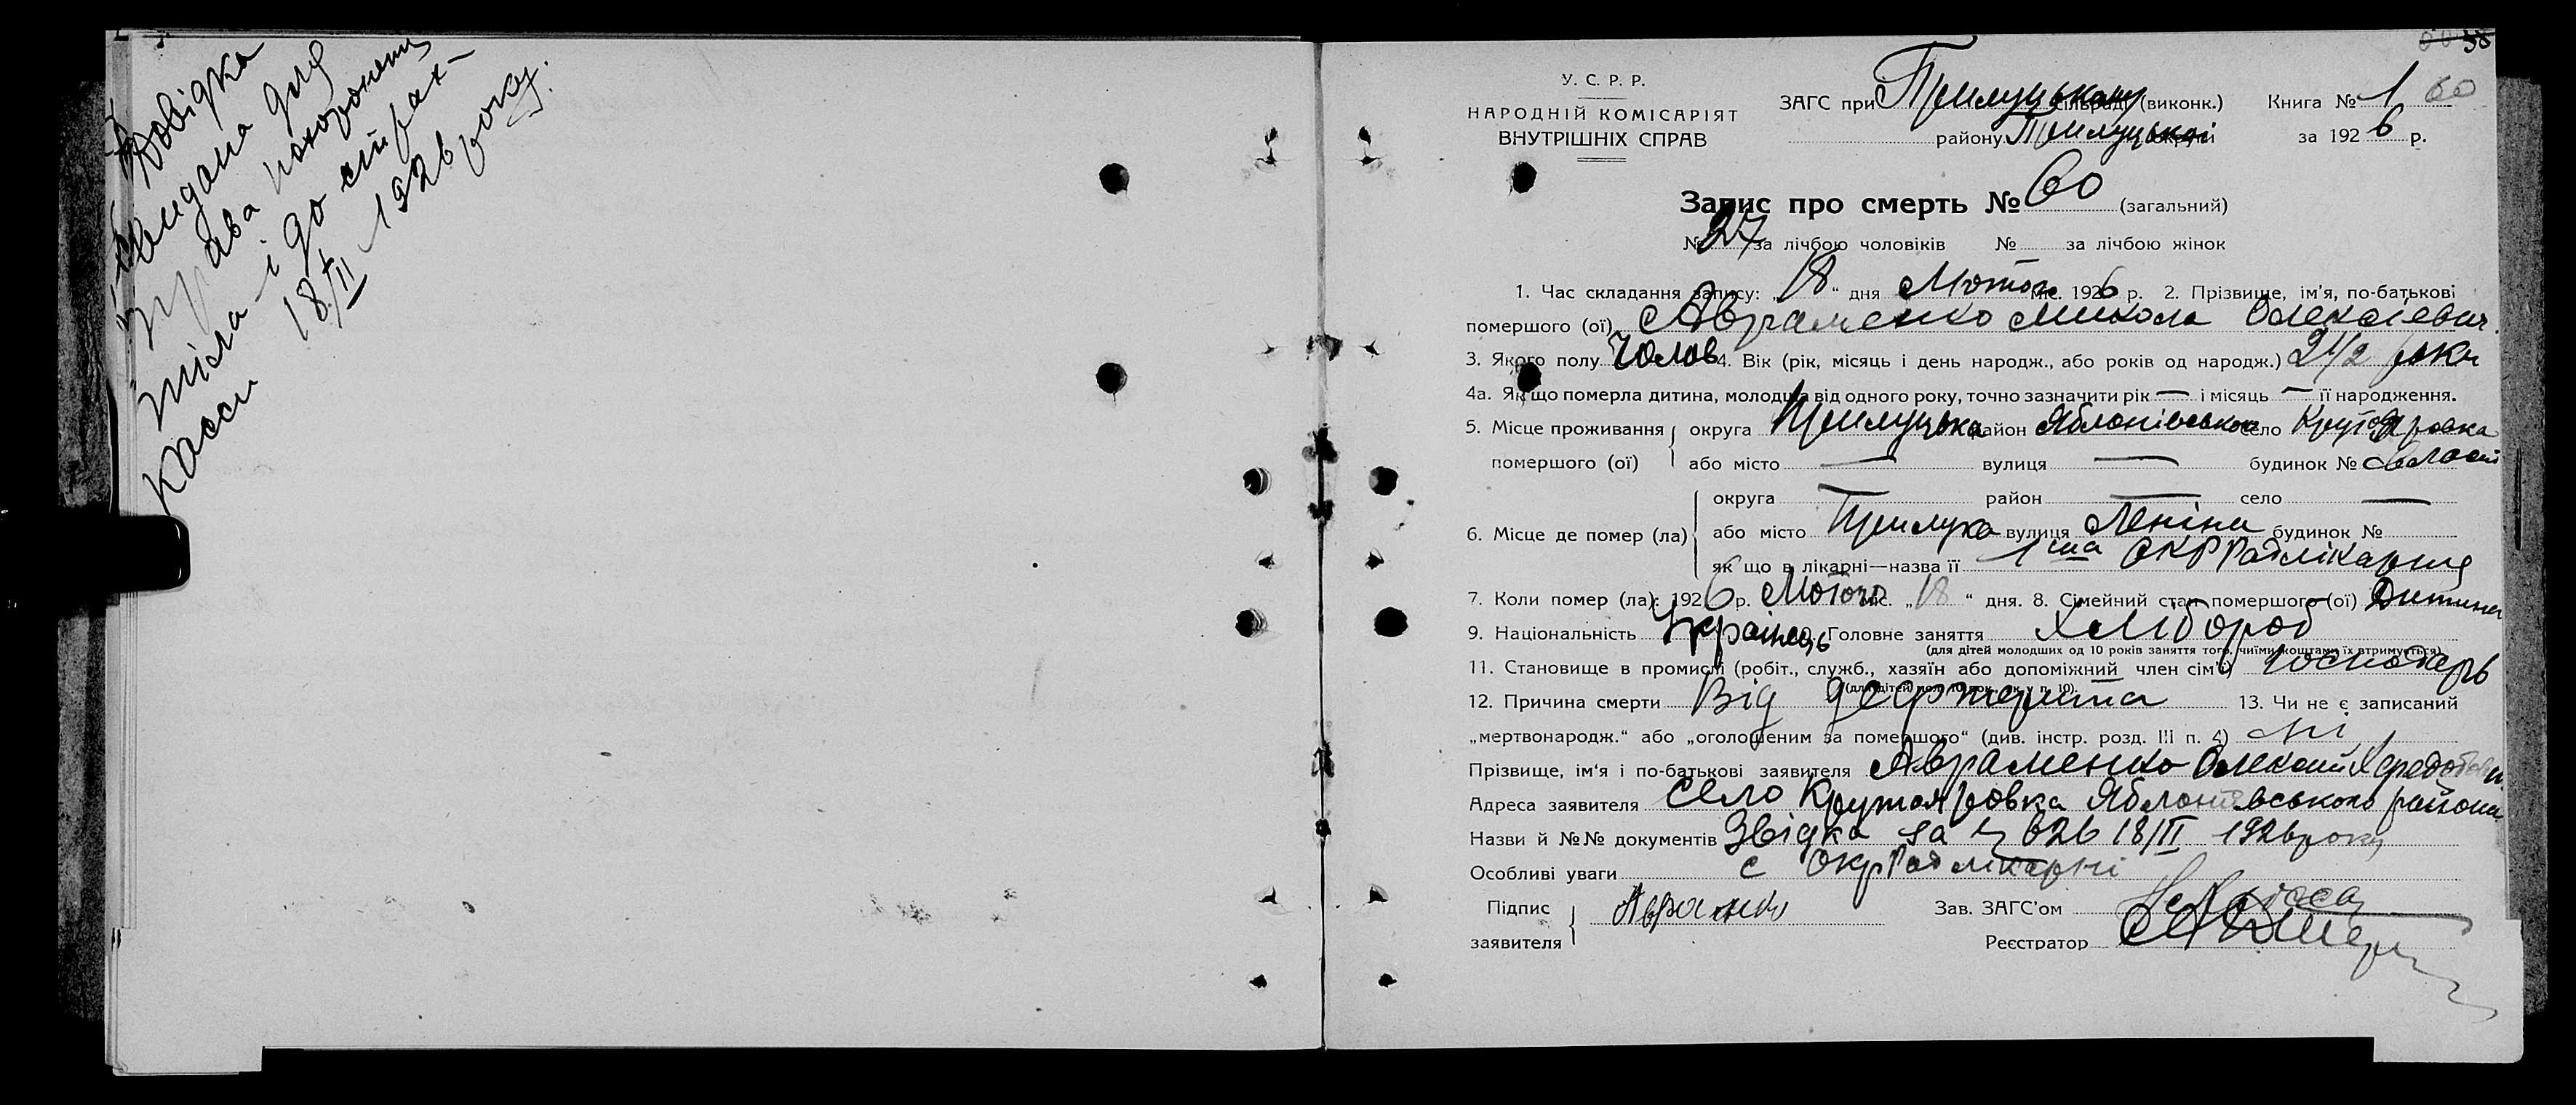 Довідка
видана для
права похоронення
тіла і до страх-
касси 18/II 1926 року.
38
У. С. Р. Р.
НАРОДНІЙ КОМІСАРІЯТ
ВНУТРІШНІХ СПРАВ
ЗАГС при Прилуцькому сільраді (виконк.) Книга № 1 60
району Прилуцької округи за 1926 р.
Запис про смерть № 60 (загальний)
№ 27 за лічбою чоловіків № за лічбою жінок
1. Час складання запису: „18“ дня Лютого міс. 1926 р. 2. Прізвище, ім'я, по-батькові
помершого (ої) Авраменко Микола Олексієвич.
3. Якого полу Чолов 4. Вік (рік, місяць і день народж., або років од народж.) 2 1/2 роки
4а. Якщо померла дитина, молодша від одного року, точно зазначити рік — і місяць — її народження.
5. Місце проживання округа Прилуцька район Яблонівського село Крутояровка
помершого (ої) або місто — вулиця — будинок №
6. Місце де помер (ла) округа — район — село —
або місто Прилука вулиця Леніна будинок №
як що в лікарні—назва її 1ша ОКРРадлікарня
7. Коли помер (ла): 1926 р. Лютого міс. „18“ дня. 8. Сімейний стан помершого (ої) Дитина
9. Національність Українець Головне заняття Хлібороб
(для дітей молодших од 10 років заняття того, чиїми коштами їх втримується)
11. Становище в промислі (робіт., служб., хазяїн або допоміжний член сім'ї) господарь
(для дітей мол. 10 рок., як у п. 10).
12. Причина смерти Від 13. Чи не є записаний
„мертвонародж.“ або „оголошеним за помершого“ (див. інстр. розд. III п. 4) ні
Прізвище, ім'я і по-батькові заявителя Авраменко Олексій
Адреса заявителя село Крутояровка Яблонівського района
Назви й №№ документів Звідка за № 626 18/II 1926 року
Особливі уваги с ОкрРадлікарні
Підпис заявителя Авраменко Зав. ЗАГС'ом
Реєстратор